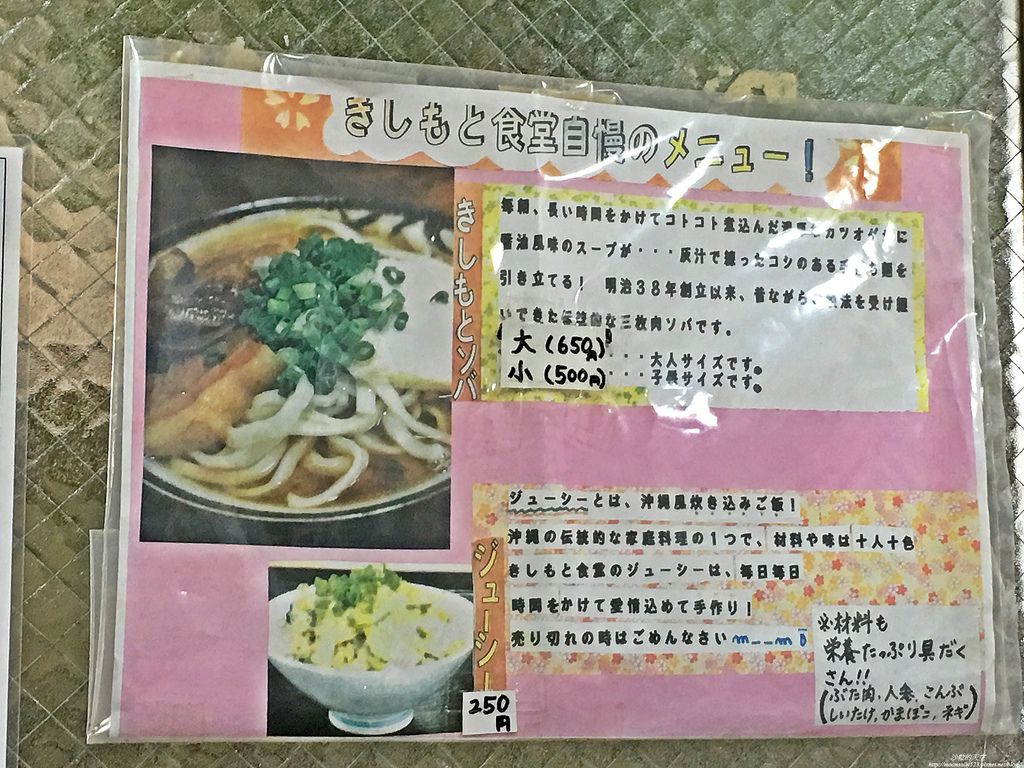 きしもと食堂自慢のメニュー！
きしもとソバ
毎朝、長い時間をかけてコトコト煮込んだ
醤油風味のスープが・・・灰汁で練ったコシのある
引き立てる！ 明治３８年創立以来、昔ながら
いできた な三枚肉ソバです。
大(650円)・・・大人サイズです。
小(500円)・・・子供サイズです。
ジューシー
ジューシーとは、沖縄風炊き込みご飯！
沖縄の伝統的な家庭料理の１つで、材料や味は十人十色
きしもと食堂のジューシーは、毎日毎日
時間をかけて愛情込めて手作り！
売り切れの時はごめんなさいm__m
250
円
※材料も
栄養たっぷり具だく
さん!!
(ぶた肉、人参、こんぶ
しいたけ、かまぼこ、ネギ)